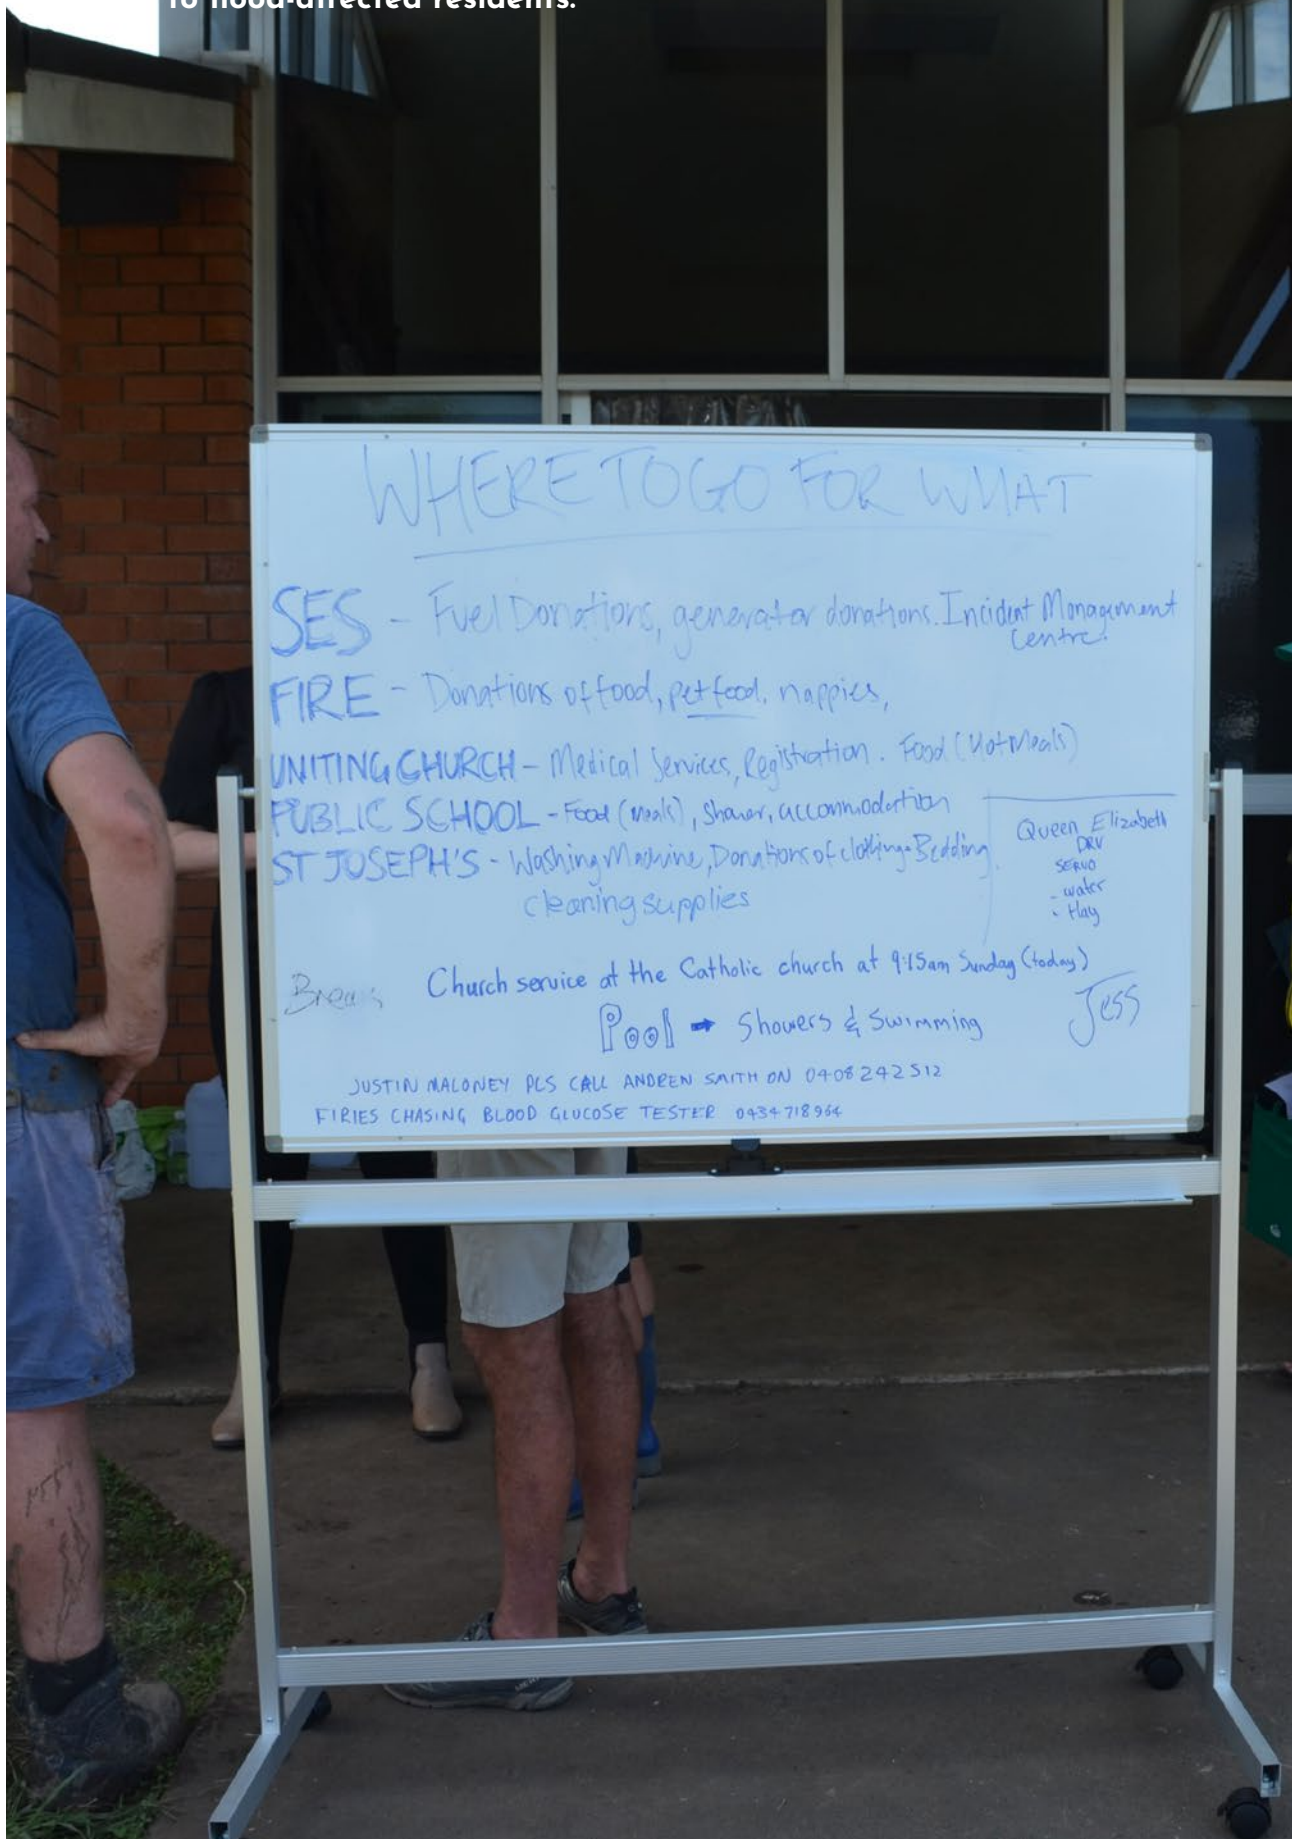 to flood-affected residents.
WHERE TO GO FOR WHAT
SES - Fuel Donations, generator donations. Incident Management
Centre.
FIRE - Donations of food, pet food, nappies,
UNITING CHURCH - Medical Services, Registration. Food (Hot Meals)
PUBLIC SCHOOL - Food (meals), shower, accommodation
ST JOSEPH'S - Washing Machine, Donations of clothing + Bedding
cleaning supplies
Queen Elizabeth
DRV
SERVO
- water
- Hay
Church service at the Catholic church at 9:15am Sunday (today)
Pool → Showers & Swimming
Jess
JUSTIN MALONEY PLS CALL ANDREN SMITH ON 0408242512
FIRIES CHASING BLOOD GLUCOSE TESTER 0434718964